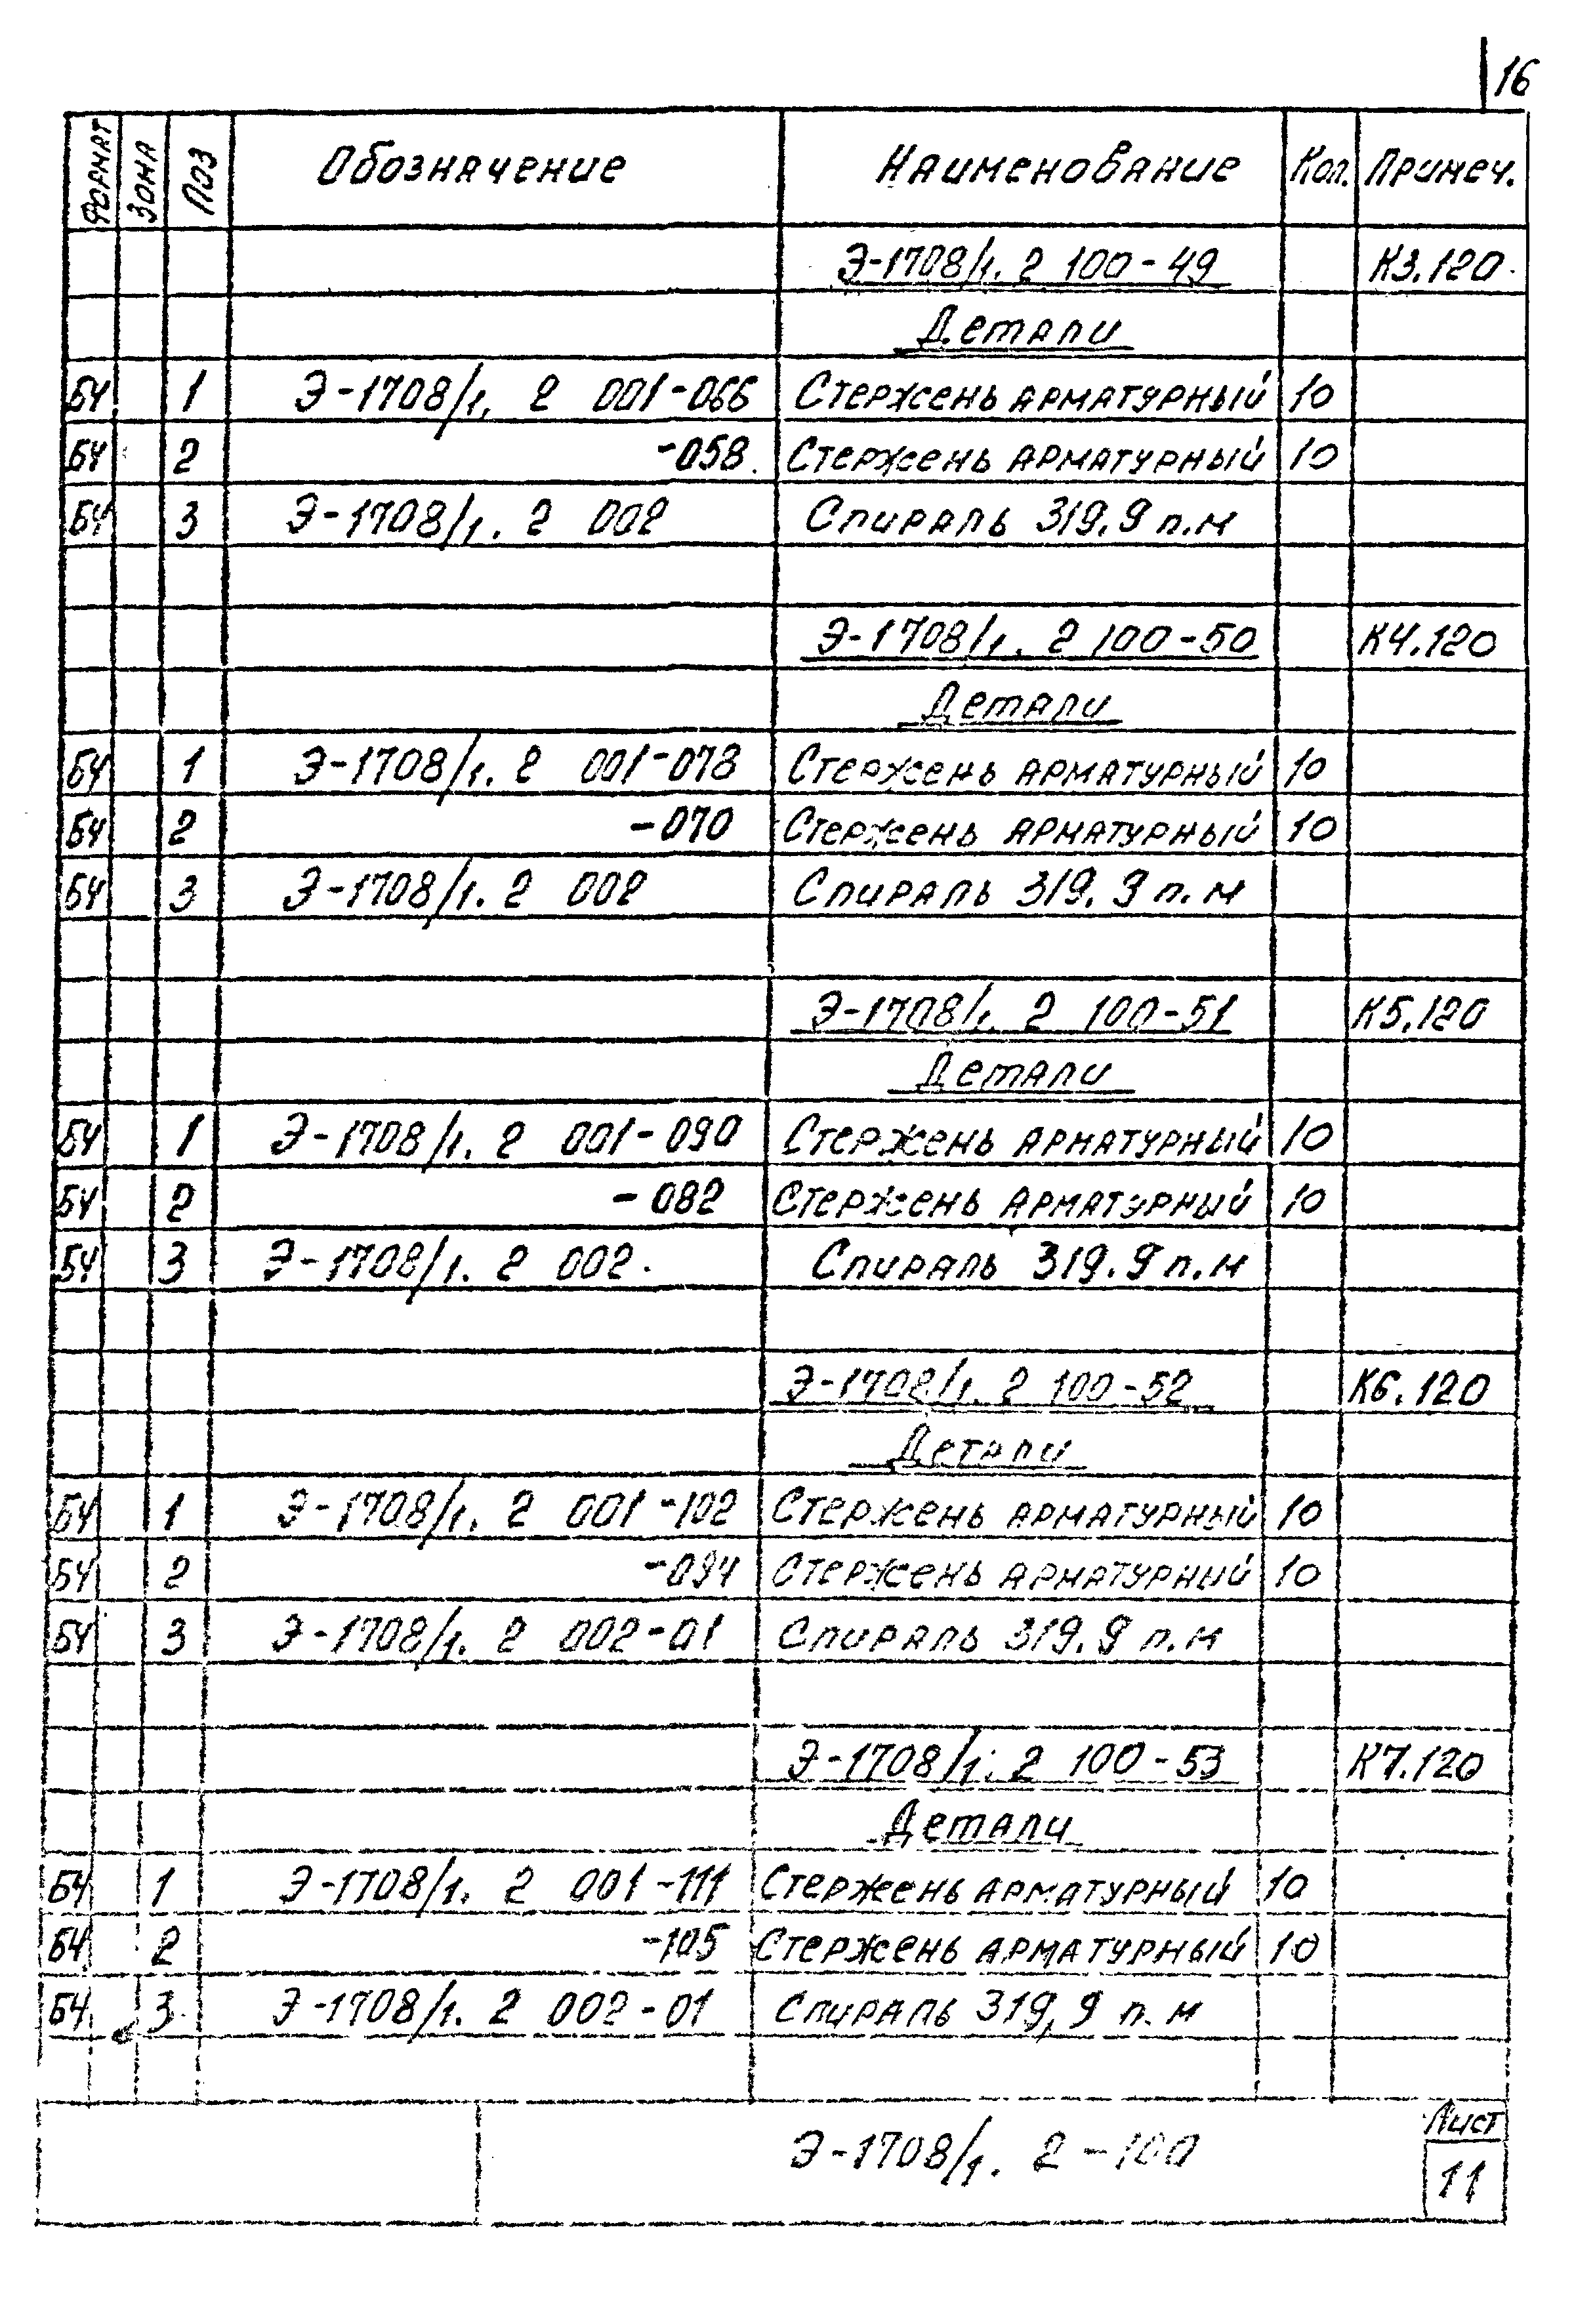 16
Формат Зона Поз Обозначение Наименование Кол. Примеч.
Э-1708/1. 2 100-49 К3.120
Детали
БЧ 1 Э-1708/1. 2 001-066 Стержень арматурный 10
БЧ 2 -058 Стержень арматурный 10
БЧ 3 Э-1708/1. 2 002 Спираль 319.9 п.м
Э-1708/1. 2 100-50 К4.120
Детали
БЧ 1 Э-1708/1. 2 001-078 Стержень арматурный 10
БЧ 2 -070 Стержень арматурный 10
БЧ 3 Э-1708/1. 2 002 Спираль 319.9 п.м
Э-1708/1. 2 100-51 К5.120
Детали
БЧ 1 Э-1708/1. 2 001-090 Стержень арматурный 10
БЧ 2 -082 Стержень арматурный 10
БЧ 3 Э-1708/1. 2 002. Спираль 319.9 п.м
Э-1708/1. 2 100-52 К6.120
Детали
БЧ 1 Э-1708/1. 2 001-102 Стержень арматурный 10
БЧ 2 -094 Стержень арматурный 10
БЧ 3 Э-1708/1. 2 002-01 Спираль 319.9 п.м
Э-1708/1. 2 100-53 К7.120
Детали
БЧ 1 Э-1708/1. 2 001-111 Стержень арматурный 10
БЧ 2 -105 Стержень арматурный 10
БЧ 3 Э-1708/1. 2 002-01 Спираль 319,9 п.м
Э-1708/1. 2-100
Лист
11